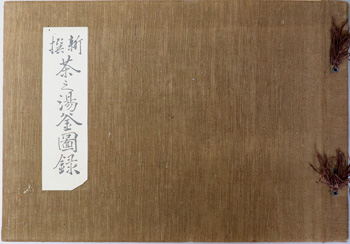 新撰
茶之湯釜圖録